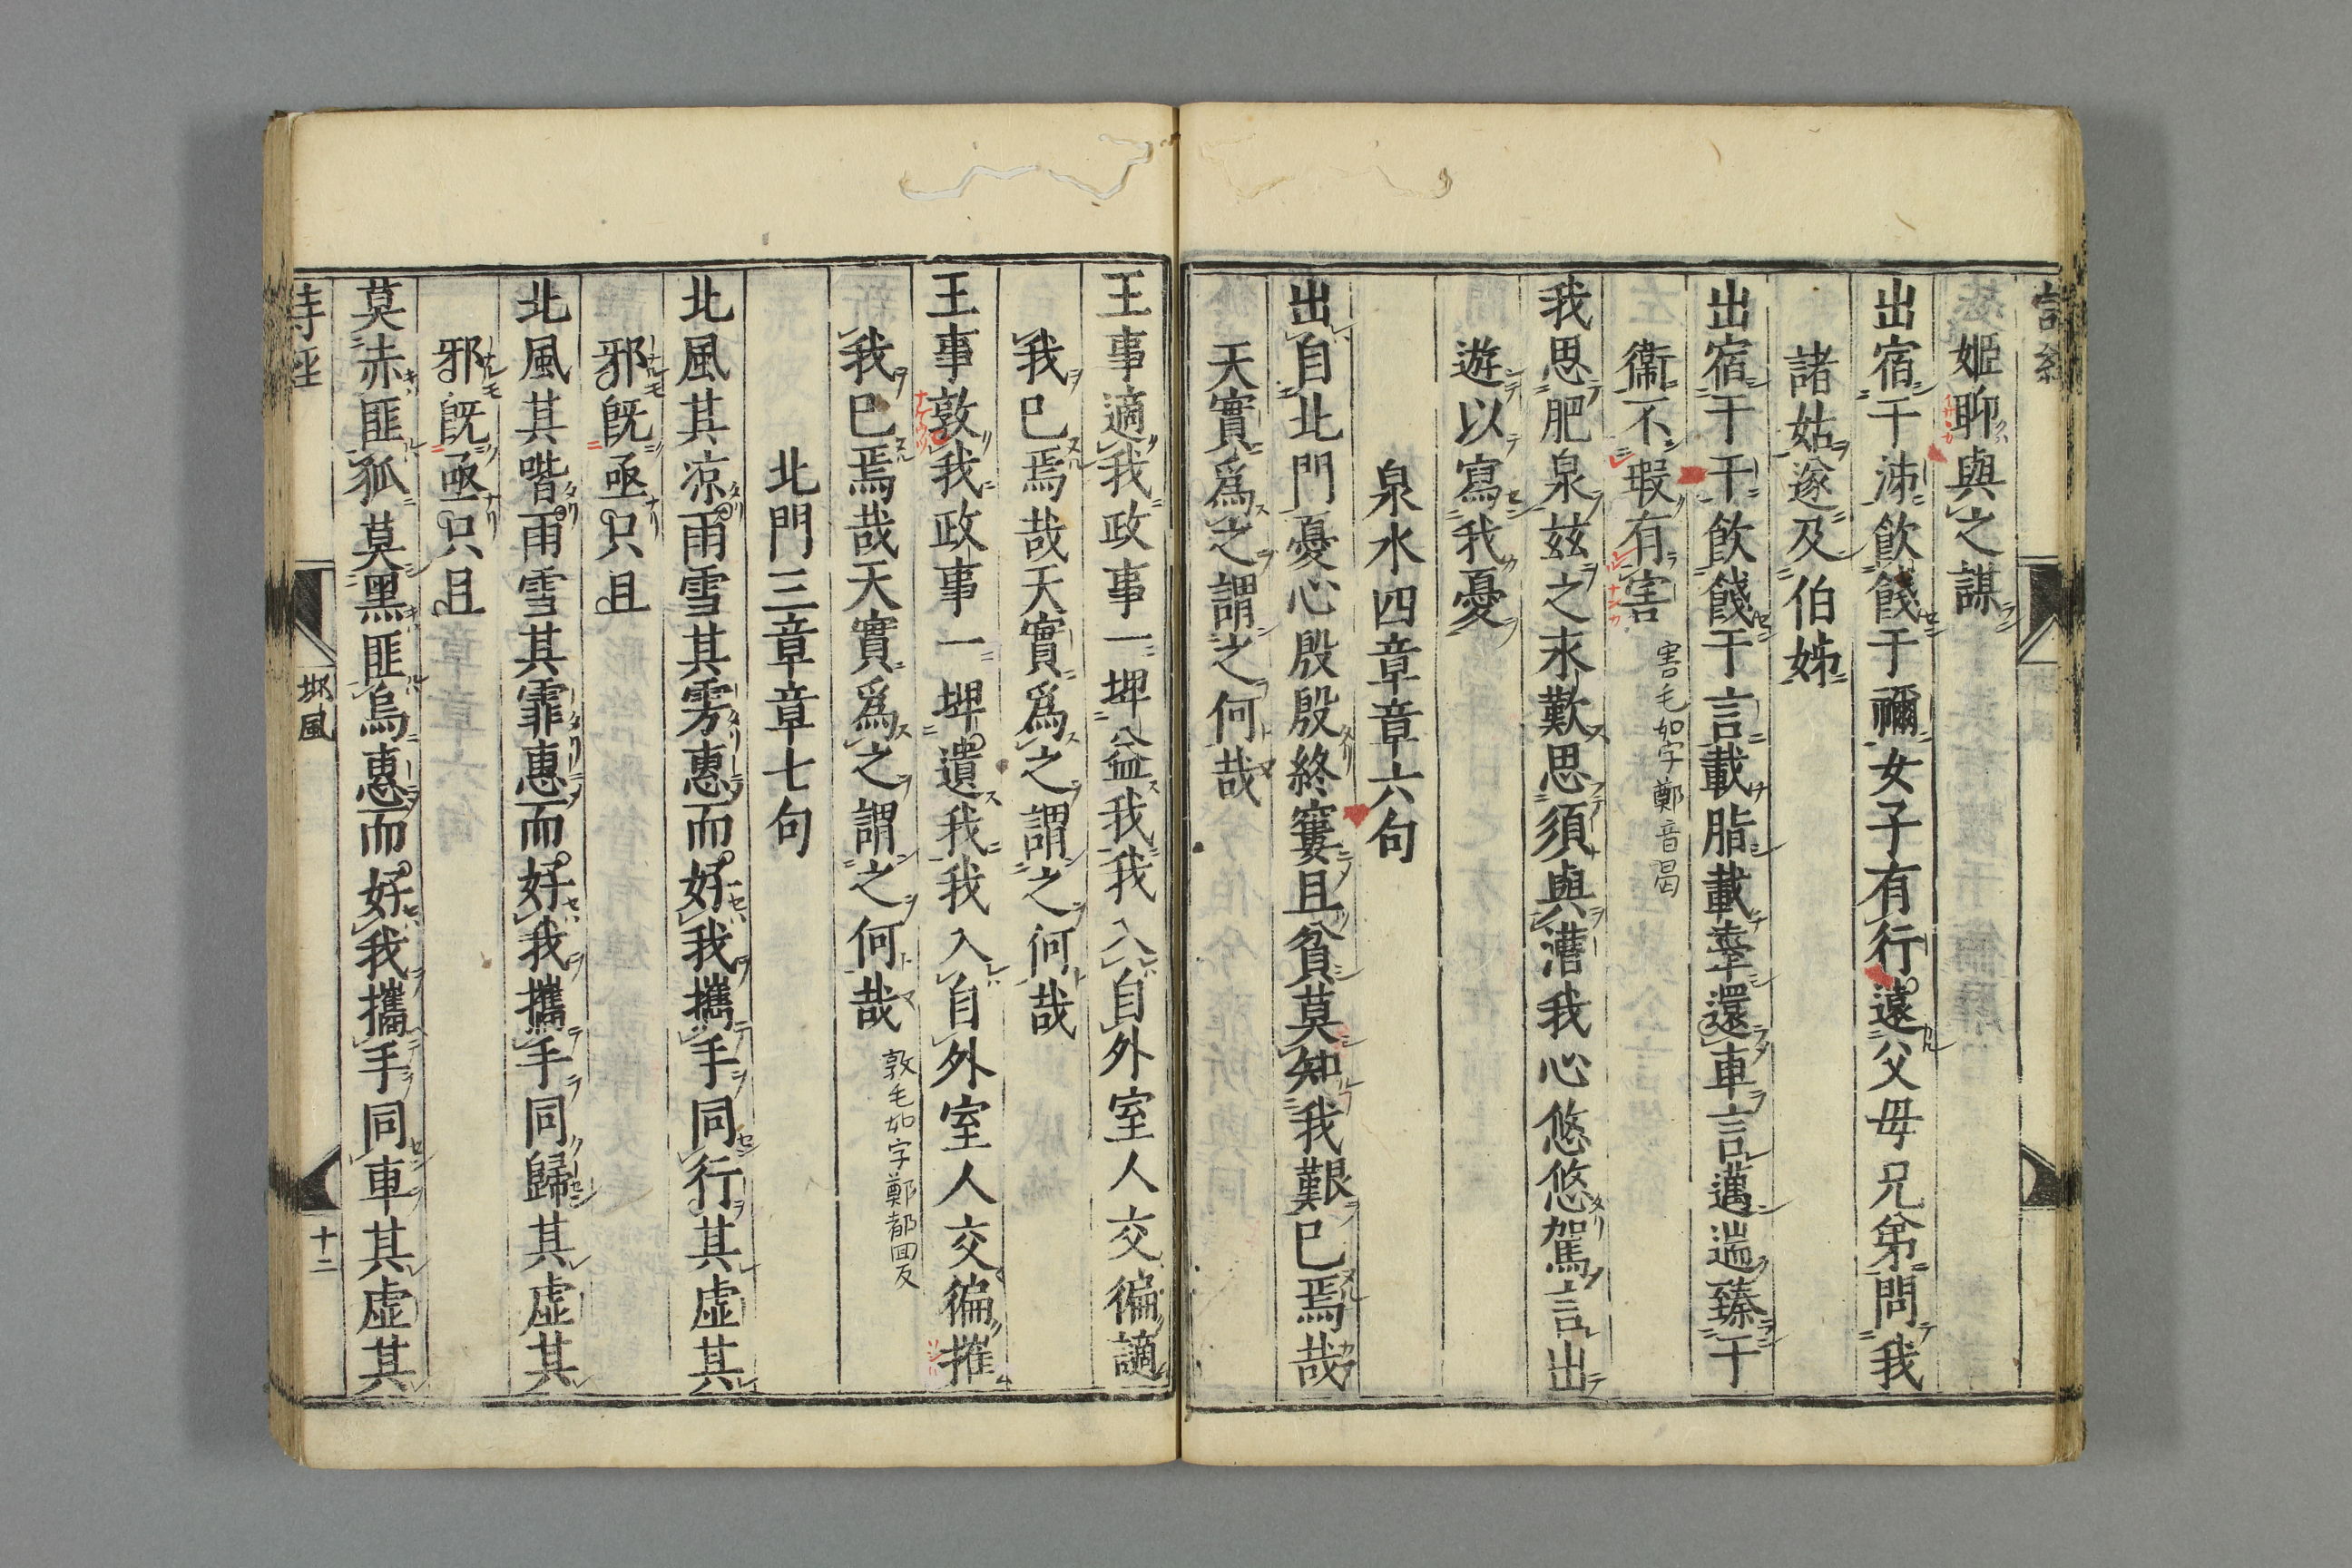 詩經
姬聊與之謀
出宿于泲飲餞于禰女子有行遠父母兄弟問我
諸姑遂及伯姊
出宿于干飲餞于言載脂載舝還車言邁遄臻于
衞不瑕有害
害毛如字鄭音曷
我思肥泉玆之永歎思須與漕我心悠悠駕言出
遊以寫我憂
泉水四章章六句
出自北門憂心殷殷終窶且貧莫知我艱已焉哉
天實爲之謂之何哉
王事適我政事一埤益我我入自外室人交徧讁
我已焉哉天實爲之謂之何哉
王事敦我政事一埤遺我我入自外室人交徧摧
我已焉哉天實爲之謂之何哉
敦毛如字鄭都回反
北門三章章七句
北風其凉雨雪其雱惠而好我攜手同行其虛其
邪旣亟只且
北風其喈雨雪其霏惠而好我攜手同歸其虛其
邪旣亟只且
莫赤匪狐莫黑匪烏惠而好我攜手同車其虛其
詩經
邶風
十二